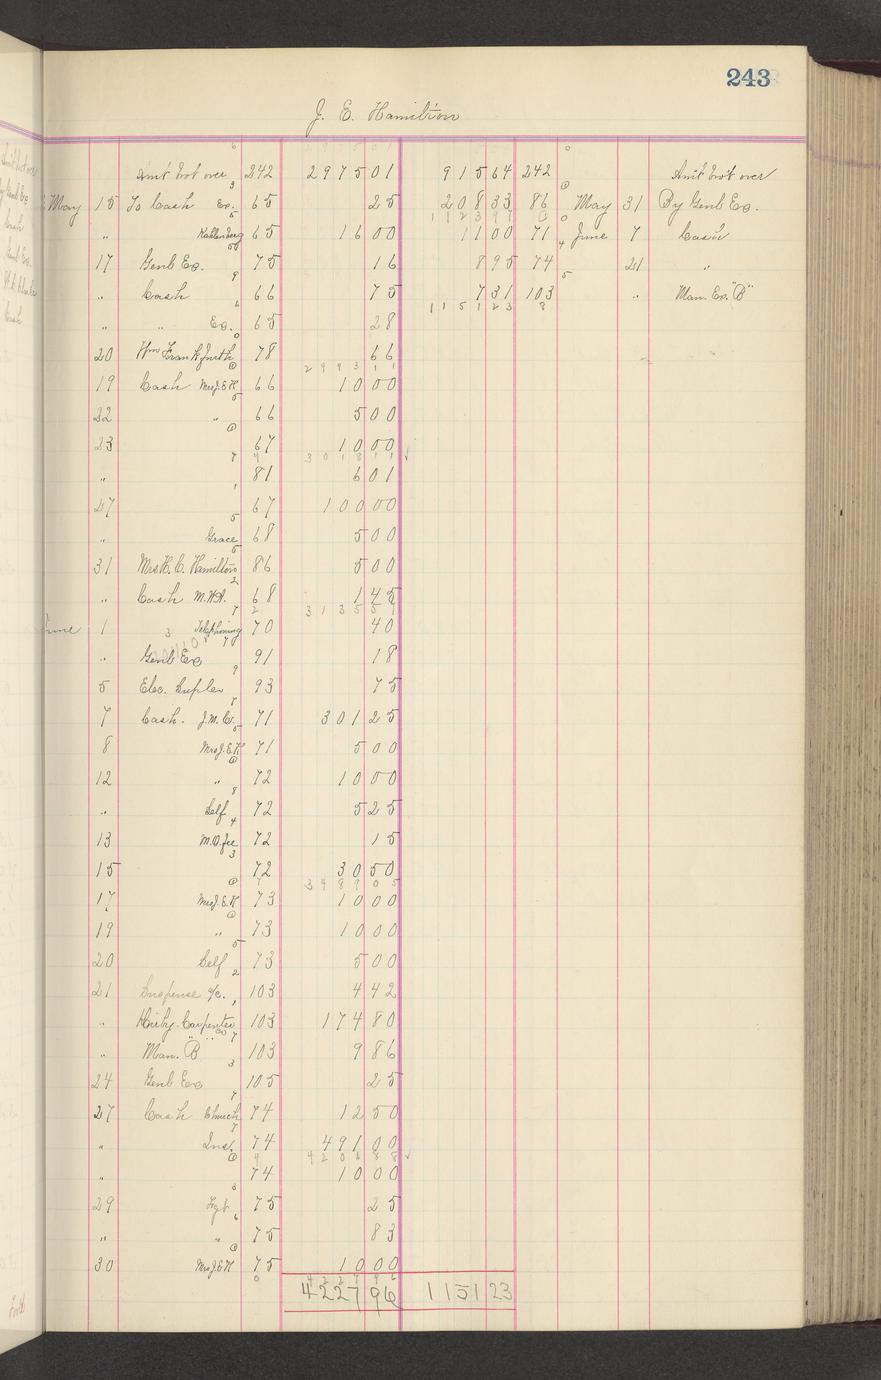 243
J. E. Hamilton
Amt brot over 242 2975 01 915 64 242 Amt brot over
May 15 To Cash Ex. 65 25 208 33 86 May 31 By Genl Ex.
1123 97
" 65 16 00 11 00 71 June 7 Cash
17 Genl Ex. 75 16 8 95 74 21 "
" Cash 66 75 7 31 103 " Man. Ex. "B"
1151 23
" " Ex. 65 28
20 78 66
2993 11
19 Cash Mrs J.E.H 66 10 00
22 " 66 5 00
23 67 10 00
3018 11
" 81 6 01
27 67 100 00
" Grace 68 5 00
31 Mrs H. C. Hamilton 86 5 00
" Cash M.H.H. 68 1 45
3135 57
June 1 Telephoning 70 40
" Genl Ex 91 18
5 Elec. Supplies 93 75
7 Cash. J.M.C. 71 301 25
8 Mrs J.E.H 71 5 00
12 " 72 10 00
" Self 72 5 25
13 72 15
15 72 30 50
3489 05
17 Mrs J.E.H 73 10 00
19 " 73 10 00
20 Self 73 5 00
21 Suspense a/c. 103 4 42
" Carpenter Co 103 174 80
" Man. "B" 103 9 86
24 Genl Exs 105 25
27 Cash Church 74 12 50
" Ins. 74 491 00
" 74 10 00
29 Frgt 75 25
" " 75 83
30 Mrs J.E.H 75 10 00
4227 96
4227 96 1151 23